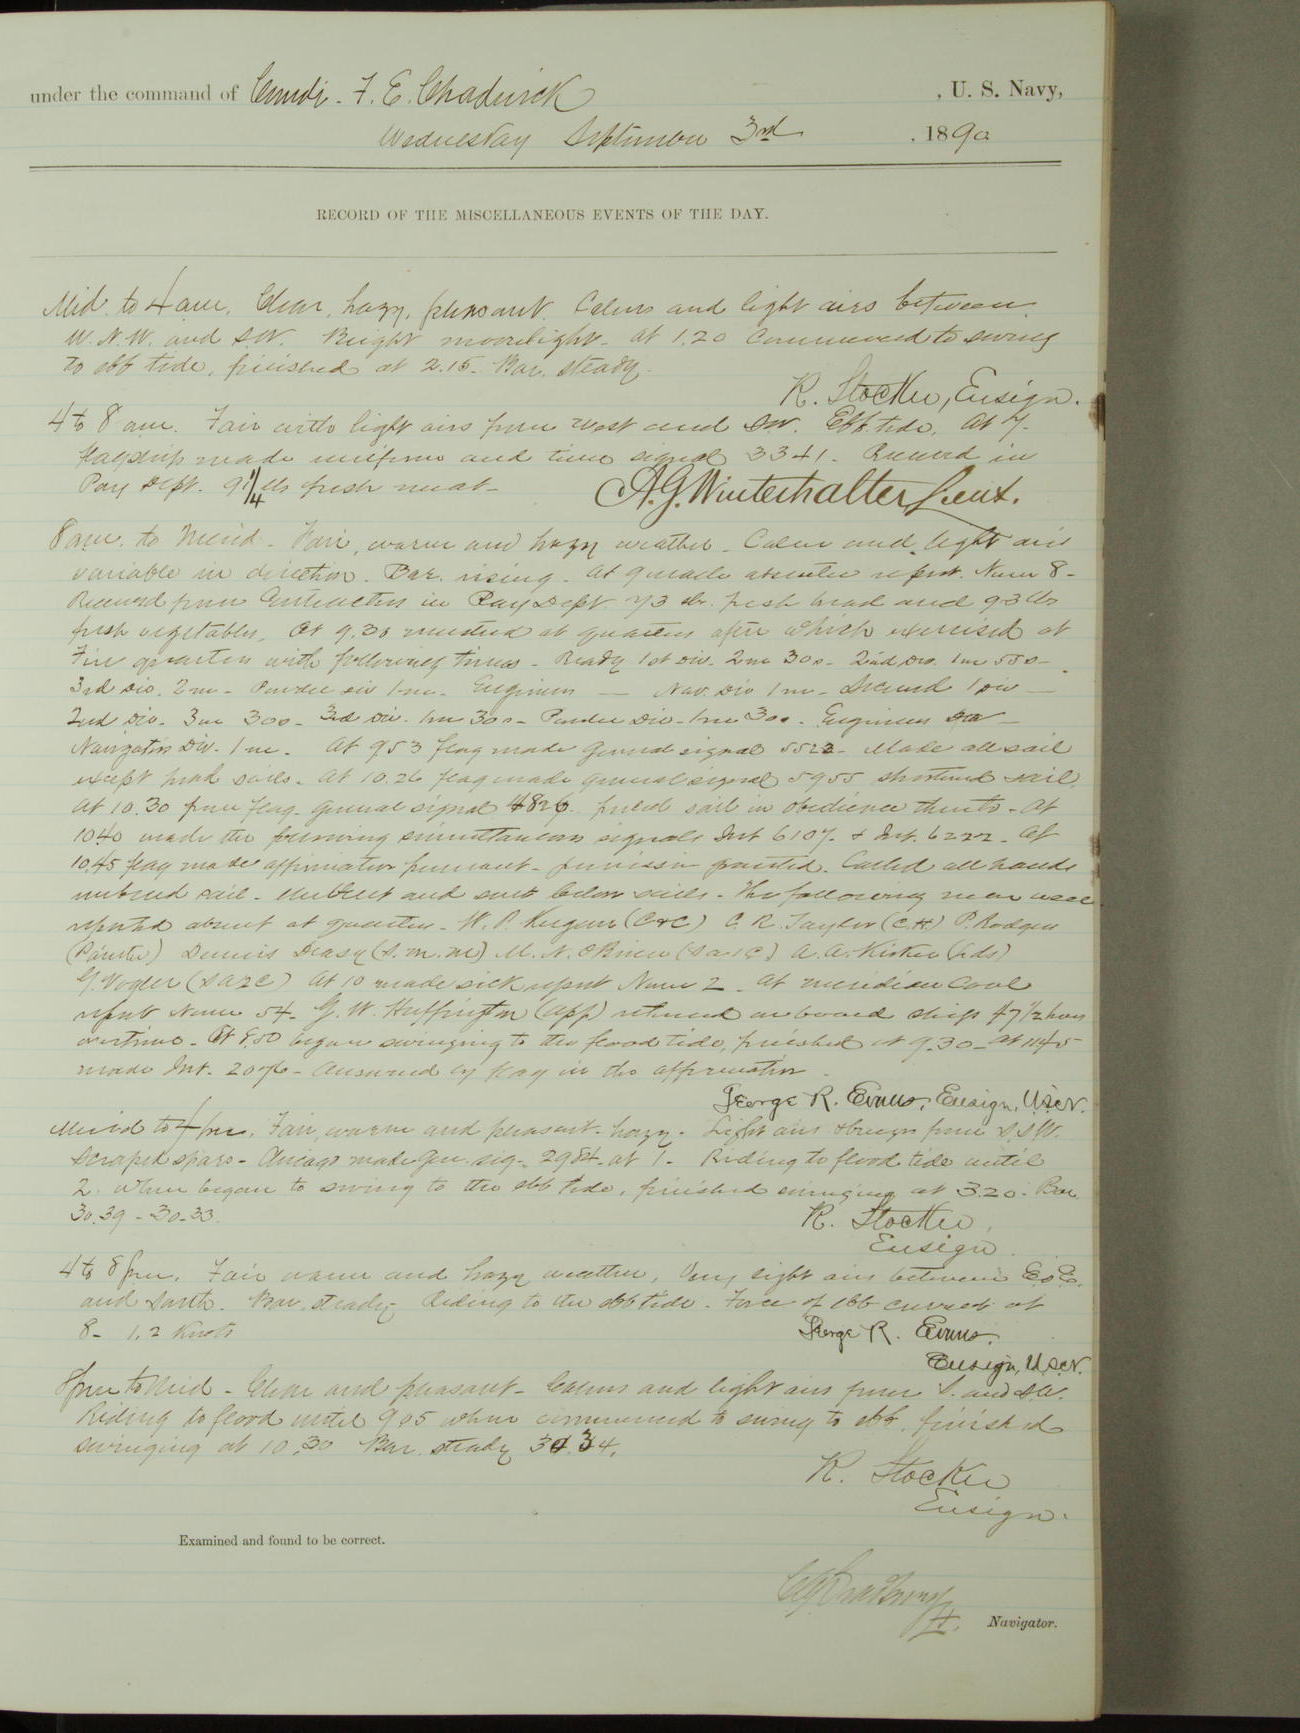 under the command of Comdr. F. E. Chadwick , U. S. Navy,
Wednesday September 3rd , 1890
RECORD OF THE MISCELLANEOUS EVENTS OF THE DAY.
Mid. to 4 am. Clear, hazy, pleasant. Calms and light airs between
W.N.W. and SW. Bright moonlight. At 1.20 commenced to swing
to ebb tide, finished at 2.15. Bar. steady.
R. Stocker, Ensign.
4 to 8 am. Fair with light airs from West and SW. Ebb tide. At 7.
flagship made uniform and time signal 3341. Received in
Pay Dept. 91 1/4 lbs fresh meat.
A. G. Winterhalter Lieut.
8 am. to Merid. Fair, warm and hazy weather. Calm and light airs
variable in direction. Bar. rising. At 9 made absentee report. Num 8.
Received from Contractors in Pay Dept. 73 lbs. fresh bread and 93 lbs
fresh vegetables. At 9.30 mustered at quarters after which exercised at
Fire quarters with following times. Ready 1st Div. 2m 30s. 2nd Div. 1m 55s.
3rd Div. 2m. Powder Div 1m. Engineers — Nav. Div 1m. Secured 1 Div —
2nd Div. 3m 30s. 3rd Div. 1m 30s. Powder Div. 1m 30s. Engineers —
Navigators Div. 1m. At 9.53 flag made General signal 5523. Made all sail
except head sails. At 10.26 flag made general signal 5955 shortened sail.
At 10.30 from flag. General signal 4826 furled sail in obedience thereto. At
10.40 made the following simultaneous signals Int 6107 & Int. 6222. At
10.45 flag made affirmative pennant. permission granted. Called all hands
unbend sail. Unbent and sent below sails. The following men were
reported absent at quarters. W. P. (C & C) C. R. Taylor (C.H.) P. Rodgers
(Painter) Dennis Deasy (S.m.m) M. N. OBrien (Sea 1C) A. A. (Lds)
G. Vogler (Sa2C) At 10 made sick report Num 2. At meridian Coal
report Num 54. G. W. Huffington (App) returned on board ship 47 1/2 hours
overtime. At 8.50 began swinging to the flood tide, finished at 9.30. At 11.45
made Int. 2076. Answered by flag in the affirmative.
George R. Evans, Ensign, U.S.N.
Merid to 4 pm. Fair, warm and pleasant. hazy. Light airs & breeze from S.S.W.
Scraped spars. Chicago made Gen. sig. 2984 at 1. Riding to flood tide until
2. when began to swing to the ebb tide, finished swinging at 3.20. Bar.
30.39 - 30.33.
R. Stocker,
Ensign.
4 to 8 pm. Fair warm and hazy weather. Very light airs between E.S.E.
and South. Bar. steady. Riding to the ebb tide. Force of ebb current at
8. 1.2 Knots
George R. Evans.
Ensign, U.S.N.
8 pm to Mid. Clear and pleasant. Calms and light airs from S. and SW.
Riding to flood until 9.05 when commenced to swing to ebb, finished
swinging at 10.30 Bar. steady 30.34.
R. Stocker
Ensign.
Examined and found to be correct.
Lt. Navigator.